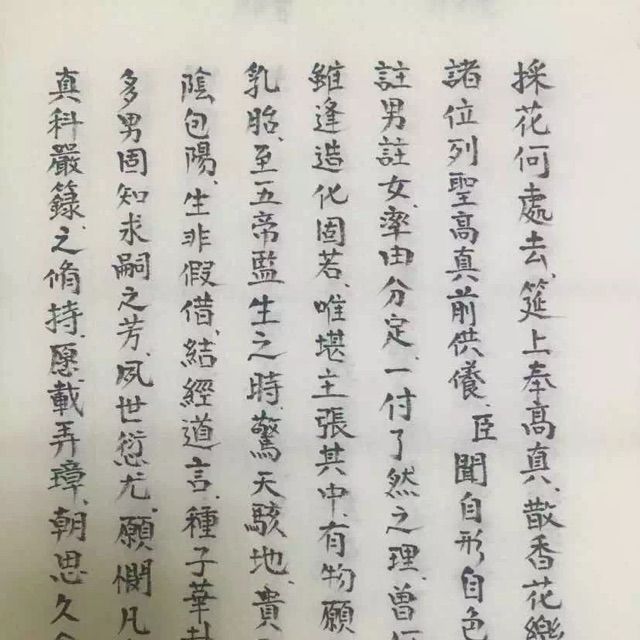 採花何處去、筵上奉高真、散香花樂
諸位列聖高真前供養、臣聞自形自色
註男註女、率由分定、一付了然之理、曾
雖逢造化固若、唯堪主張其中、有物願
乳胎、至五帝監生之時、驚天駭地、貴
陰包陽、生非假借、結經道言、種子華
多男固知求嗣之芳、夙世愆尤、願憫凡
真科嚴籙、之脩持、載弄璋、朝思久